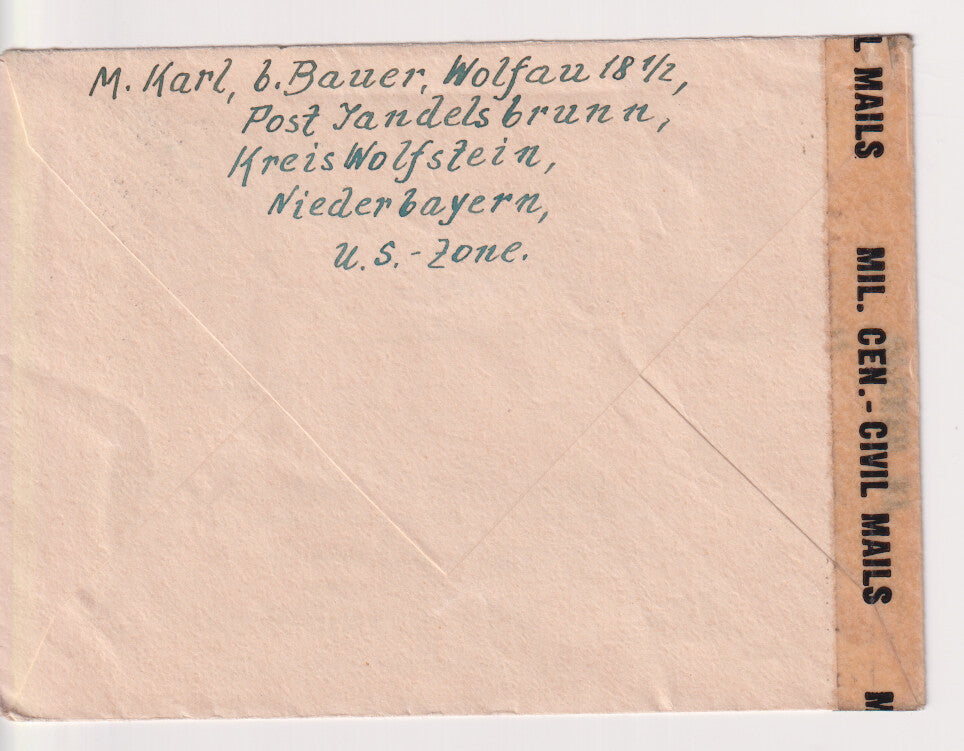 M. Karl, b. Bauer, Wolfau 18 1/2,
Post Jandelsbrunn,
Kreis Wolfstein,
Niederbayern,
U.S.-Zone.
L MAILS
MIL. CEN.-CIVIL MAILS
M